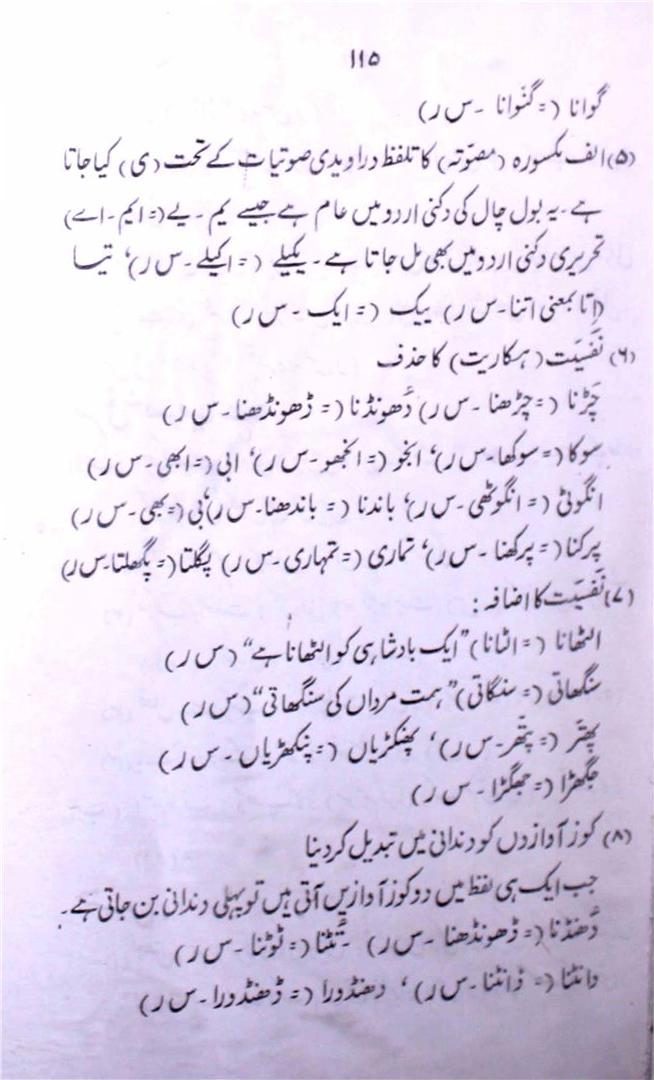 ۱۱۵
گوانا (= گنّوانا - س ر)
(۵) الف مکسورہ (مصوّتہ) کا تلفظ دراویدی صوتیات کے تحت (ی) کیا جاتا
ہے - یہ بول چال کی دکنی اردو میں عام ہے جیسے یم - یے (= ایم - اے)
تحریری دکنی اردو میں بھی مل جاتا ہے - یکیلے (= اکیلے - س ر)، تیا
(اِتا بمعنی اتنا - س ر) ییک (= ایک - س ر)
(۶) نَفَسیّت (ہکاریت) کا حذف
چَڑنا (= چڑھنا - س ر) دُھونڈنا (= ڈھونڈھنا - س ر)
سوکا (= سوکھا - س ر)، انجو (= انجھو - س ر)، ابی (= ابھی - س ر)
انگوٹی (= انگوٹھی - س ر)، باندنا (= باندھنا - س ر)، بی (= بھی - س ر)
پرکنا (= پرکھنا - س ر)، تماری (= تمہاری - س ر) پگلتا (= پگھلتا - س ر)
(۷) نَفَسیّت کا اضافہ :
الٹھانا (= الٹانا) ”ایک بادشاہی کو الٹھانا ہے“ (س ر)
سنگھاتی (= سنگاتی) ”ہمت مرداں کی سنگھاتی“ (س ر)
پھتّر (= پتّھر - س ر)، پھنکڑیاں (= پنکھڑیاں - س ر)
جگھڑا (= جھگڑا - س ر)
(۸) کوز آوازوں کو دندانی میں تبدیل کر دینا
جب ایک ہی لفظ میں دو کوز آوازیں آتی ہیں تو پہلی دندانی بن جاتی ہے۔
دُھنڈنا (= ڈھونڈھنا - س ر) - تُٹنا (= ٹوٹنا - س ر)
دانٹنا (= ڈانٹنا - س ر)، دھنڈورا (= ڈھنڈورا - س ر)